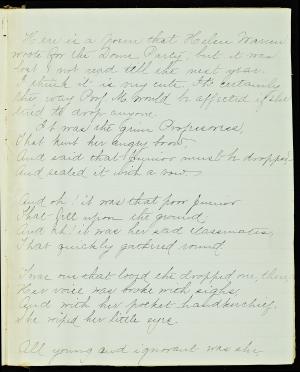 Here is a poem that Helen Warren
wrote for the Dome Party, but it was
lost & not read till the next year.
I think it is very cute. It's certainly
the way Prof. M. would be affected if she
tried to drop anyone.
It was the grim Professoress,
That knit her angry brow
And said that Junior must be dropped
And sealed it with a vow.
And oh! it was that poor Junior
That fell upon the ground
And ah! it was her sad classmates,
That quickly gathered round
'Twas one that loved the dropped one, then,
Her voice was broke with sighs
And with her pocket handkerchief.
She wiped her little eyes.
All young and ignorant was she